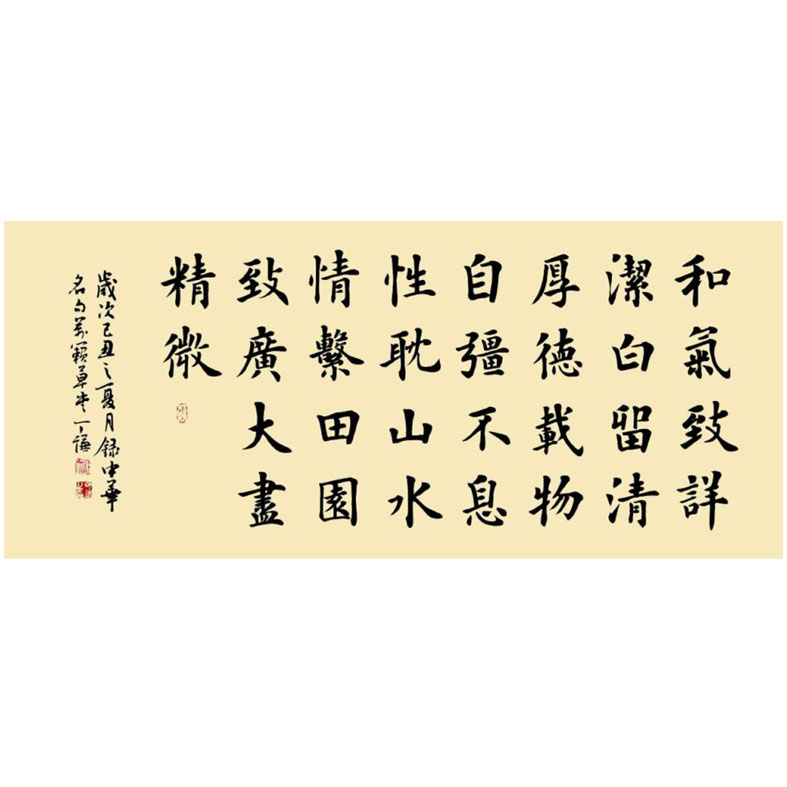 和氣致詳
潔白留清
厚德載物
自彊不息
性耽山水
情繫田園
致廣大盡
精微
歲次己丑之夏月錄中華
名句萬籟草堂丁謙